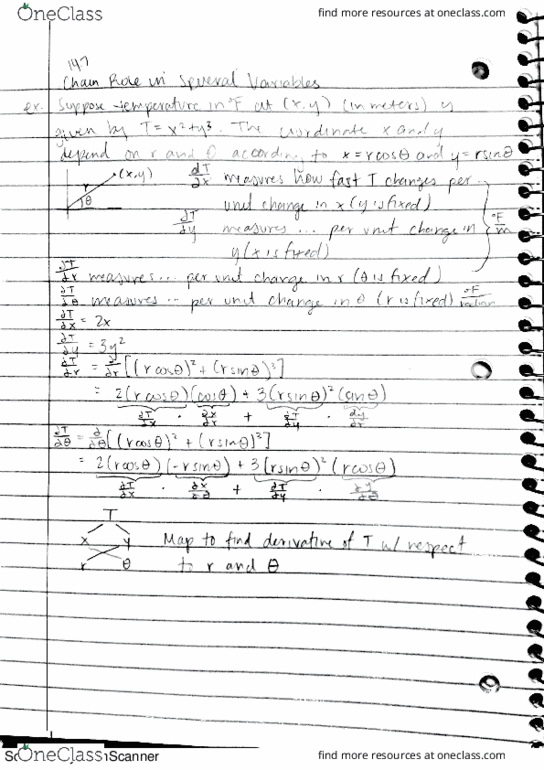 OneClass
find more resources at oneclass.com
147
Chain Rule in Several Variables
ex. Suppose temperature in °F at (x,y) (in meters) is
given by T = x² + y³. The coordinate x and y
depend on r and θ according to x = rcosθ and y = rsinθ
(x,y)
r
θ
∂T/∂x measures how fast T changes per
unit change in x (y is fixed)
∂T/∂y measures ... per unit change in
y (x is fixed)
°F/m
∂T/∂r measures ... per unit change in r (θ is fixed)
∂T/∂θ measures ... per unit change in θ (r is fixed) °F/radian
∂T/∂x = 2x
∂T/∂y = 3y²
∂T/∂r = ∂/∂r [(rcosθ)² + (rsinθ)³]
= 2(rcosθ)(cosθ) + 3(rsinθ)²(sinθ)
∂T/∂x · ∂x/∂r + ∂T/∂y · ∂y/∂r
∂T/∂θ = ∂/∂θ [(rcosθ)² + (rsinθ)³]
= 2(rcosθ)(-rsinθ) + 3(rsinθ)²(rcosθ)
∂T/∂x · ∂x/∂θ + ∂T/∂y · ∂y/∂θ
T
x y
r θ
Map to find derivative of T w/ respect
to r and θ
OneClass
Scanner
find more resources at oneclass.com